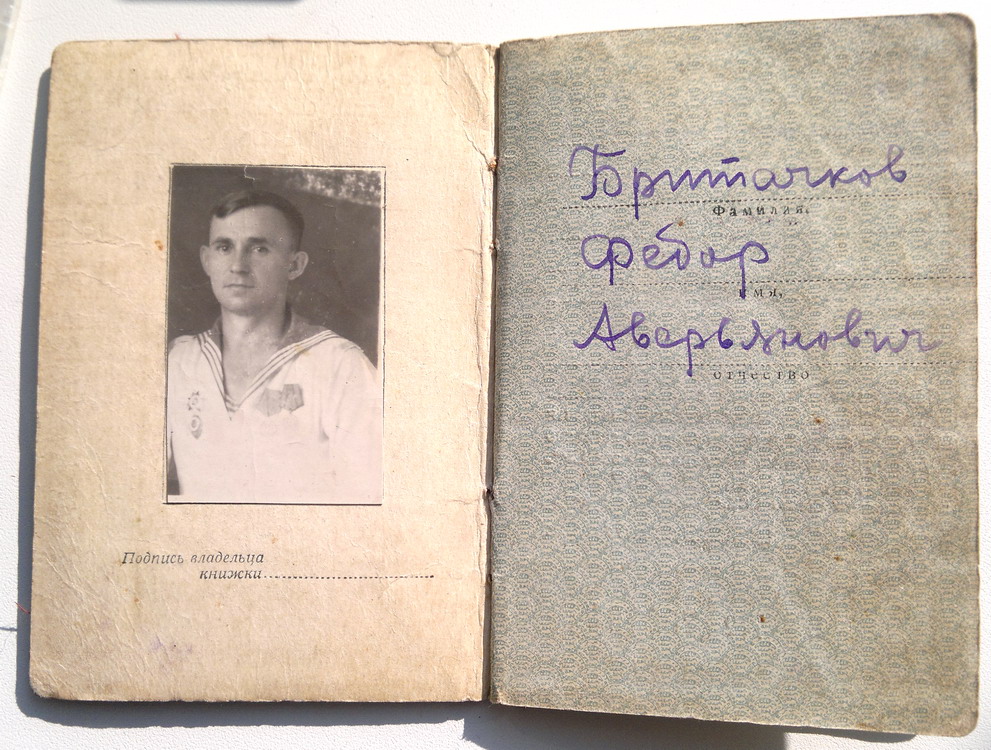 Подпись владельца
книжки
Бритачков
Фамилия,
Федор
имя,
Аверьянович
отчество